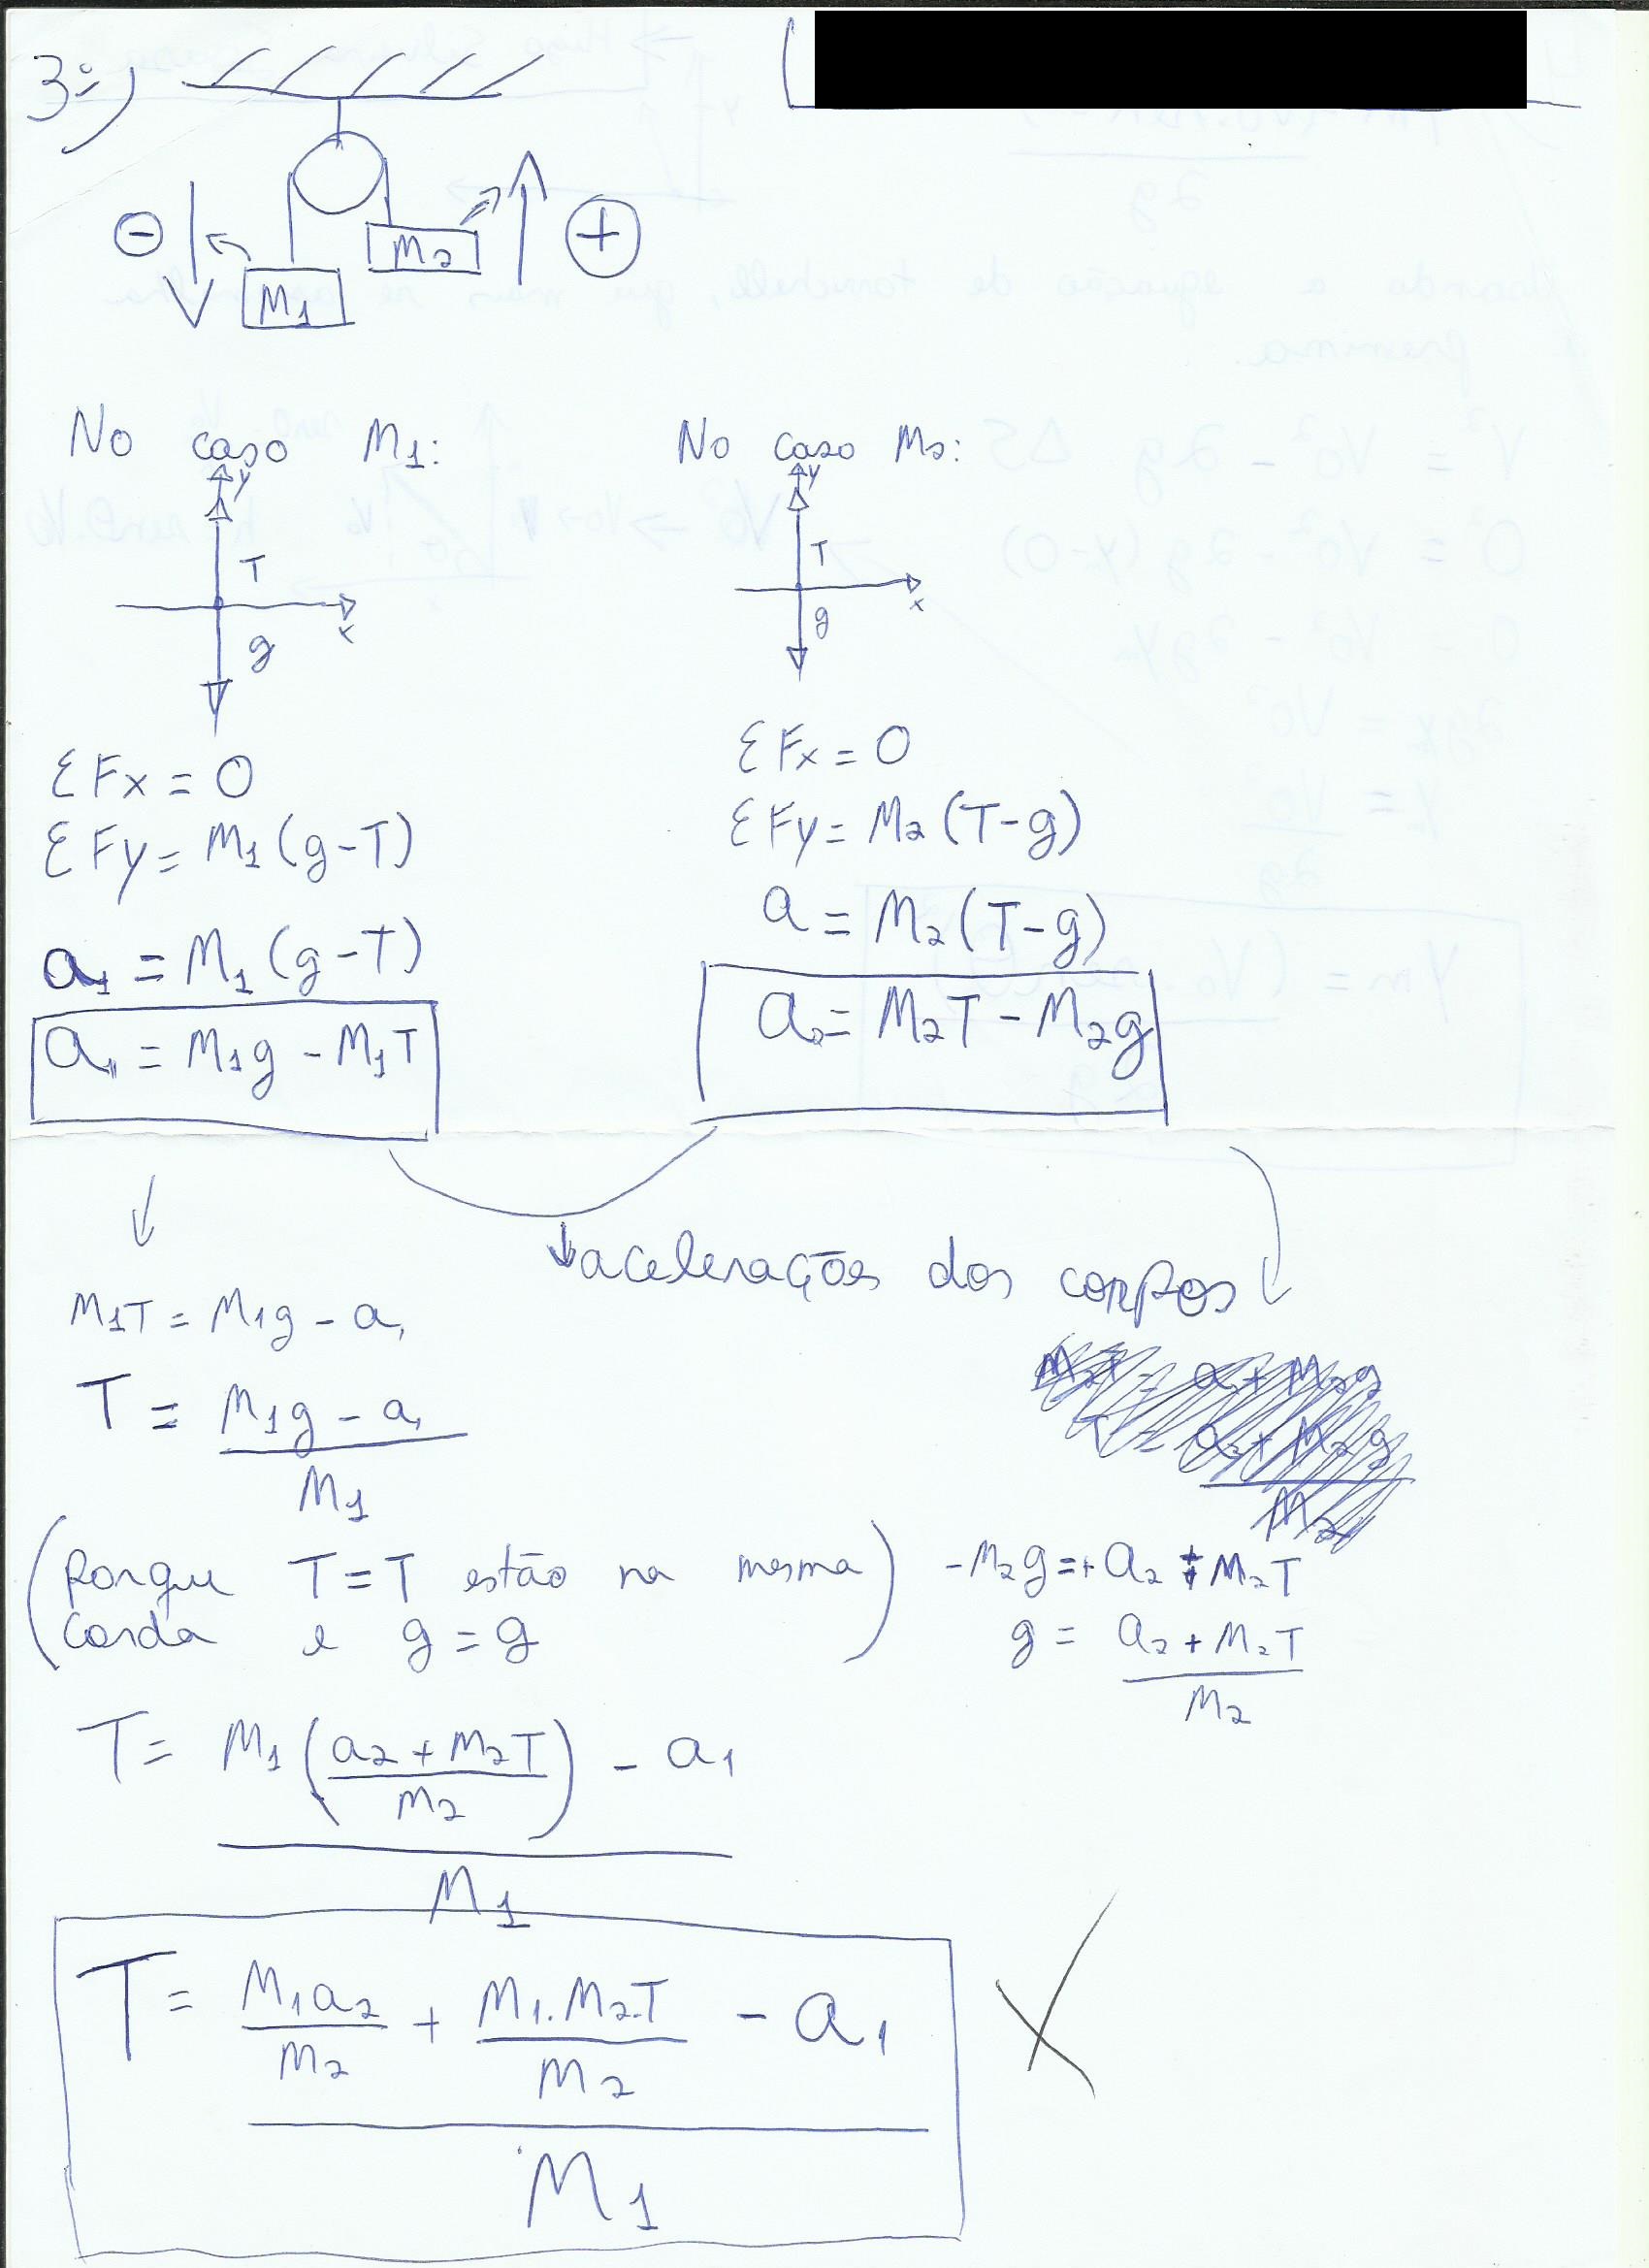 3º)
⊖ M1 M2 ⊕
No caso M1:
y
T
x
g
ΣFx = 0
ΣFy = M1(g-T)
a1 = M1(g-T)
a1 = M1g - M1T
No caso M2:
y
T
x
g
ΣFx = 0
ΣFy = M2(T-g)
a = M2(T-g)
a2 = M2T - M2g
acelerações dos corpos
M1T = M1g - a1
T = (M1g - a1)/M1
(Porque T=T estão na mesma
corda e g=g)
-M2g = +a2 + M2T
g = (a2 + M2T)/M2
T = (M1((a2 + M2T)/M2) - a1)/M1
T = (M1a2/M2 + M1.M2.T/M2 - a1)/M1